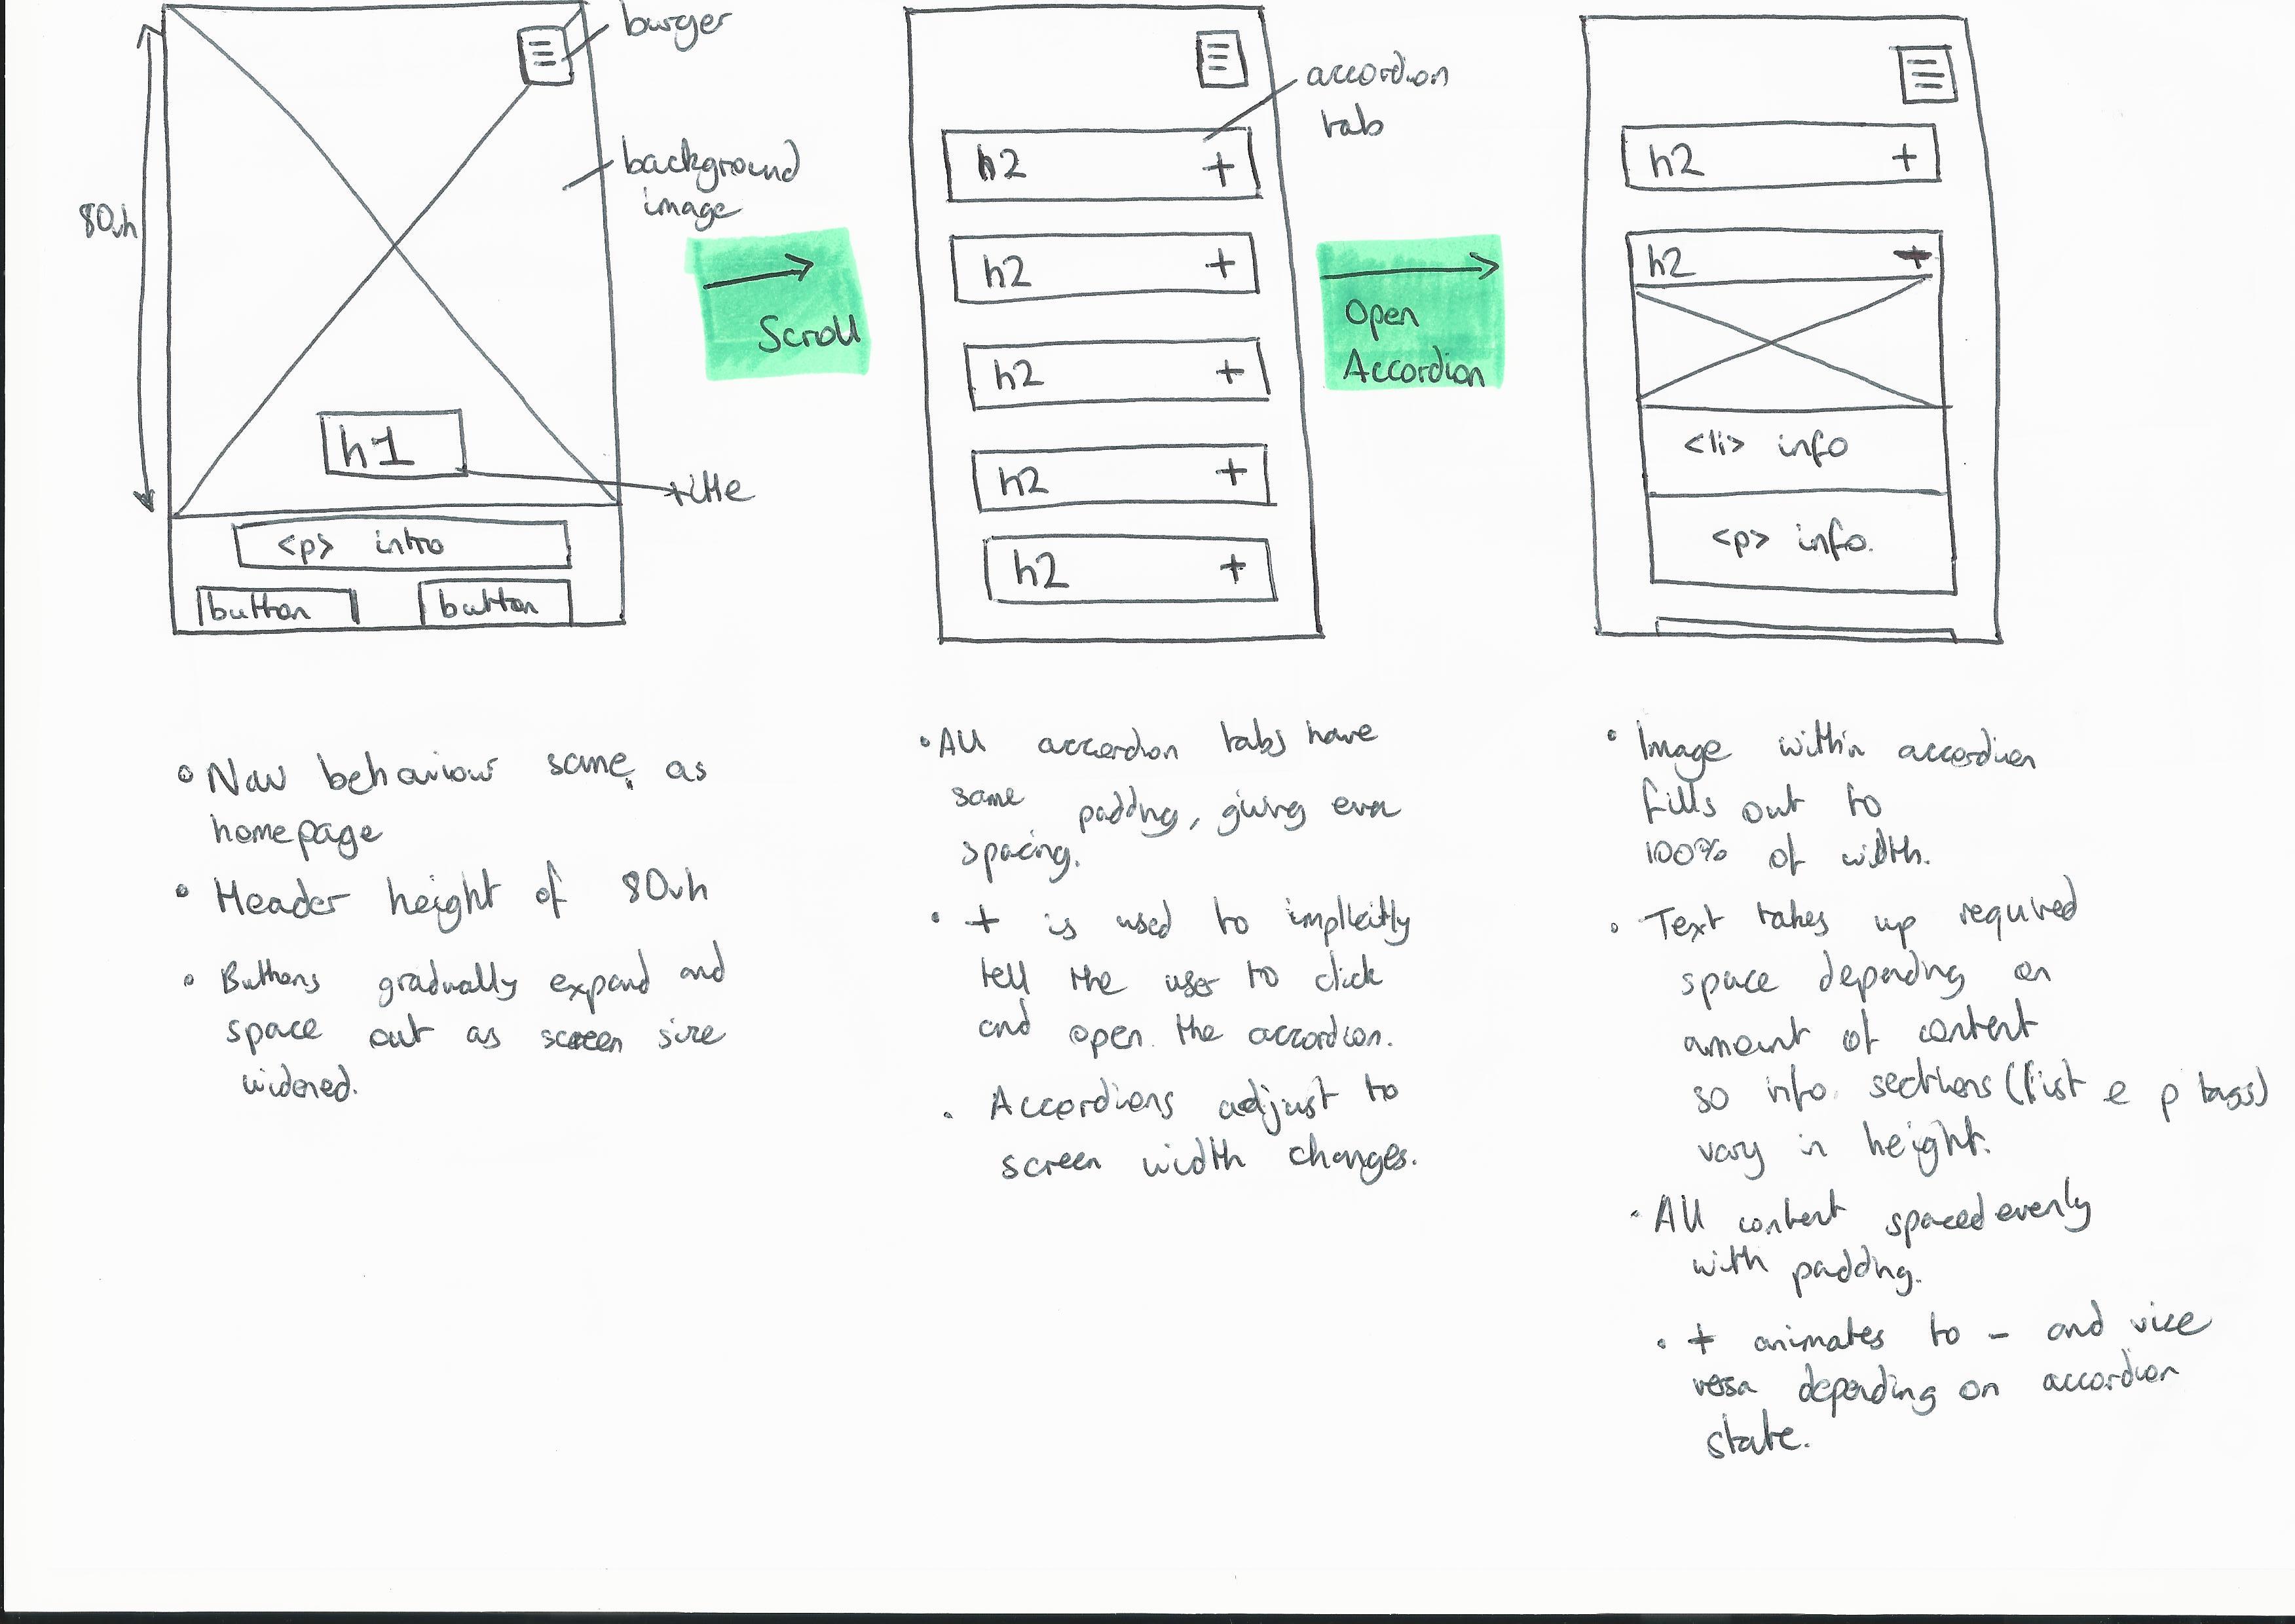 burger
background
image
80vh
h1
title
<p> intro
button
button
Scroll
accordion
tab
h2 +
h2 +
h2 +
h2 +
h2 +
Open
Accordion
h2 +
h2
<li> info
<p> info.
• Nav behaviour same as
homepage
• Header height of 80vh
• Buttons gradually expand and
space out as screen size
widened.
• All accordion tabs have
same padding, giving even
spacing.
• + is used to implicitly
tell the user to click
and open the accordion.
• Accordions adjust to
screen width changes.
• Image within accordion
fills out to
100% of width.
• Text takes up required
space depending on
amount of content
so info. sections (list & p tags)
vary in height.
• All content spaced evenly
with padding.
• + animates to - and vice
versa depending on accordion
state.